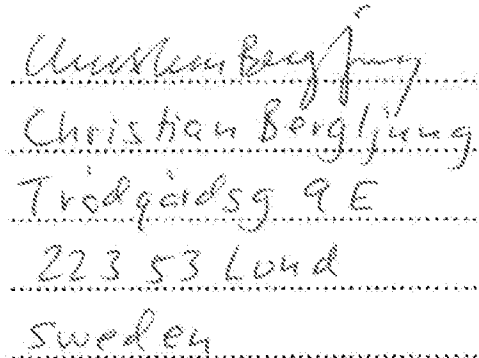 Christian Bergljung
Christian Bergljung
Trädgårdsg 9 E
223 53 Lund
Sweden